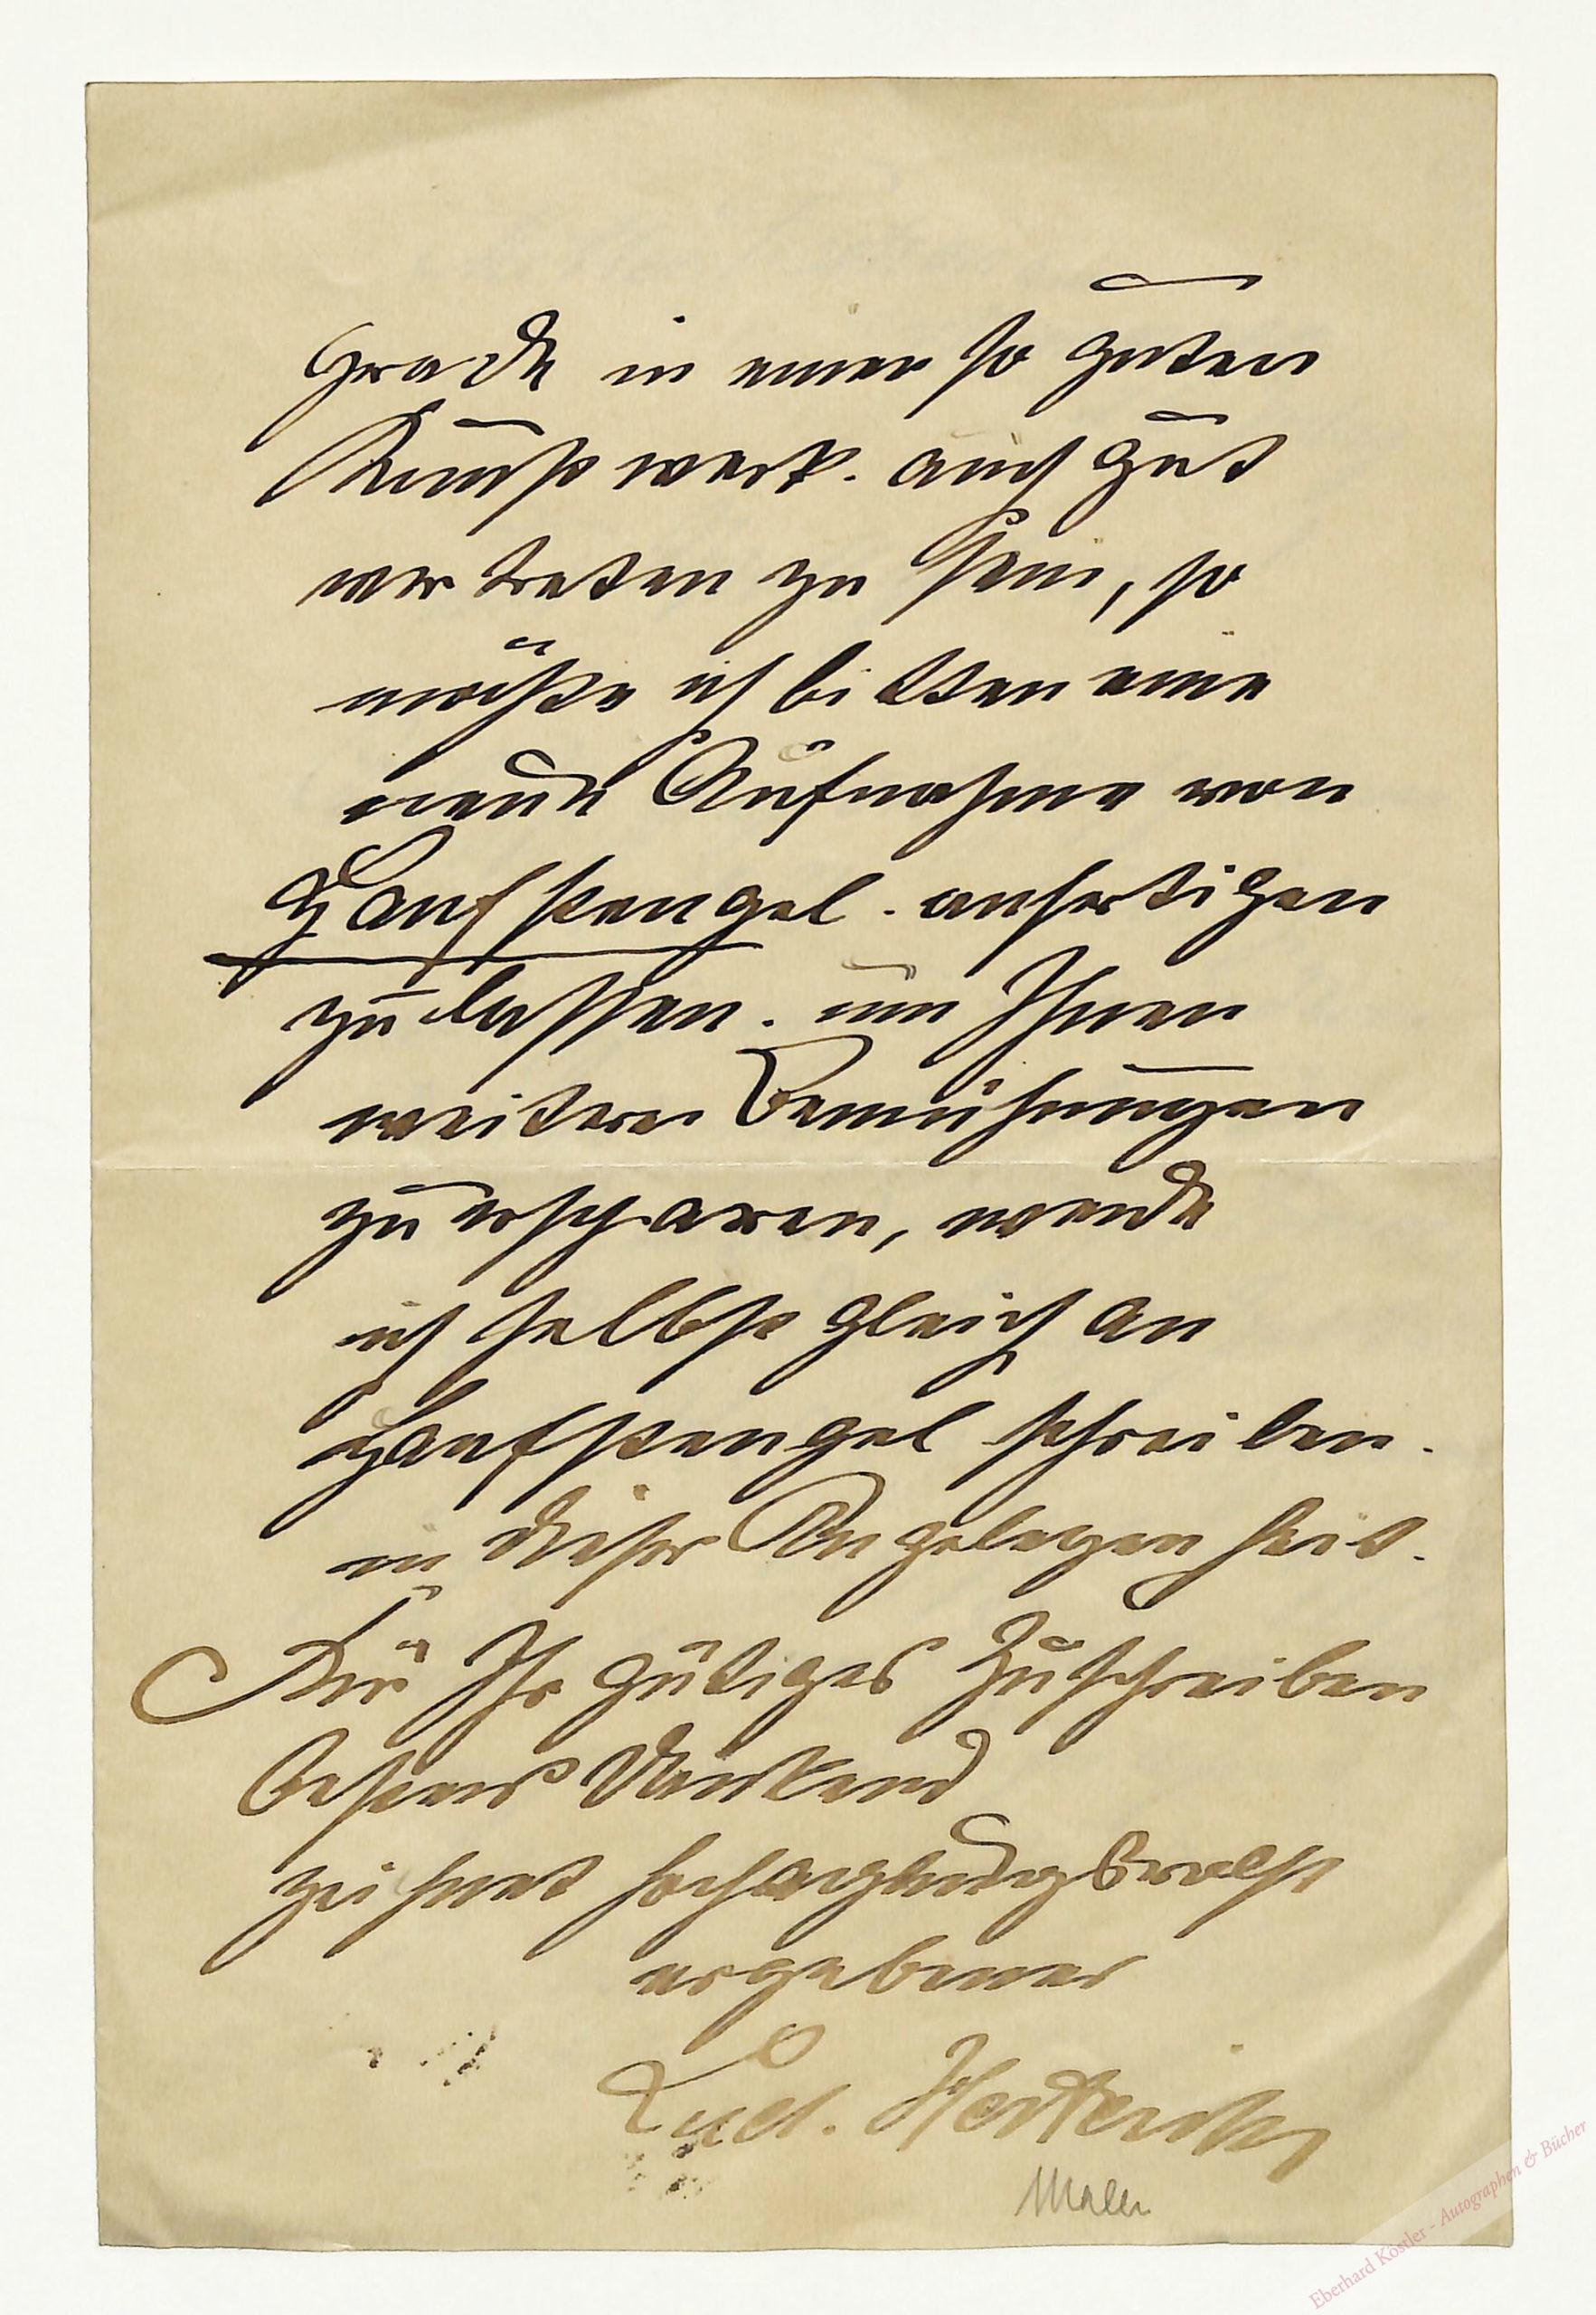 grade in einem so guten
Kunstwerk. auch gut
vertreten zu sein, so
möchte ich bitten eine
neue Aufnahme von
Hanfstengel. anfertigen
zu lassen. um Ihnen
weitere Bemühungen
zu ersparen, werde
ich selbst gleich an
Hanfstengel schreiben.
in dieser Angelegenheit.
Für Ihr gütiges Zuschreiben
bestens dankend
zeichnet hochachtungsvollst
ergebener
Lud. Herterich
Maler
Eberhard Köstler - Autographen & Bücher